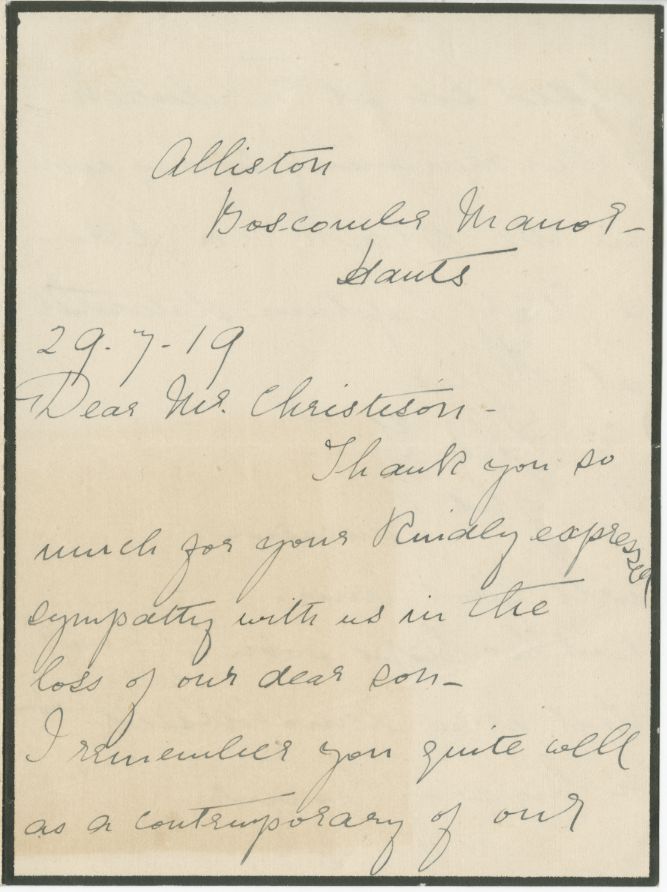 Alliston
Boscombe Manor -
Hants
29.7-19
Dear Mr. Christison -
Thank you so
much for your kindly expressed
sympathy with us in the
loss of our dear son -
I remember you quite well
as a contemporary of our